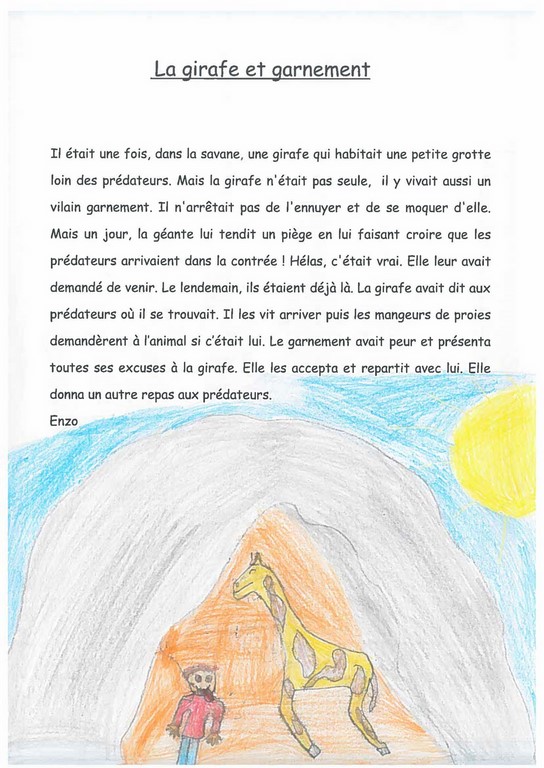 La girafe et garnement
Il était une fois, dans la savane, une girafe qui habitait une petite grotte
loin des prédateurs. Mais la girafe n'était pas seule, il y vivait aussi un
vilain garnement. Il n'arrêtait pas de l'ennuyer et de se moquer d'elle.
Mais un jour, la géante lui tendit un piège en lui faisant croire que les
prédateurs arrivaient dans la contrée ! Hélas, c'était vrai. Elle leur avait
demandé de venir. Le lendemain, ils étaient déjà là. La girafe avait dit aux
prédateurs où il se trouvait. Il les vit arriver puis les mangeurs de proies
demandèrent à l'animal si c'était lui. Le garnement avait peur et présenta
toutes ses excuses à la girafe. Elle les accepta et repartit avec lui. Elle
donna un autre repas aux prédateurs.
Enzo